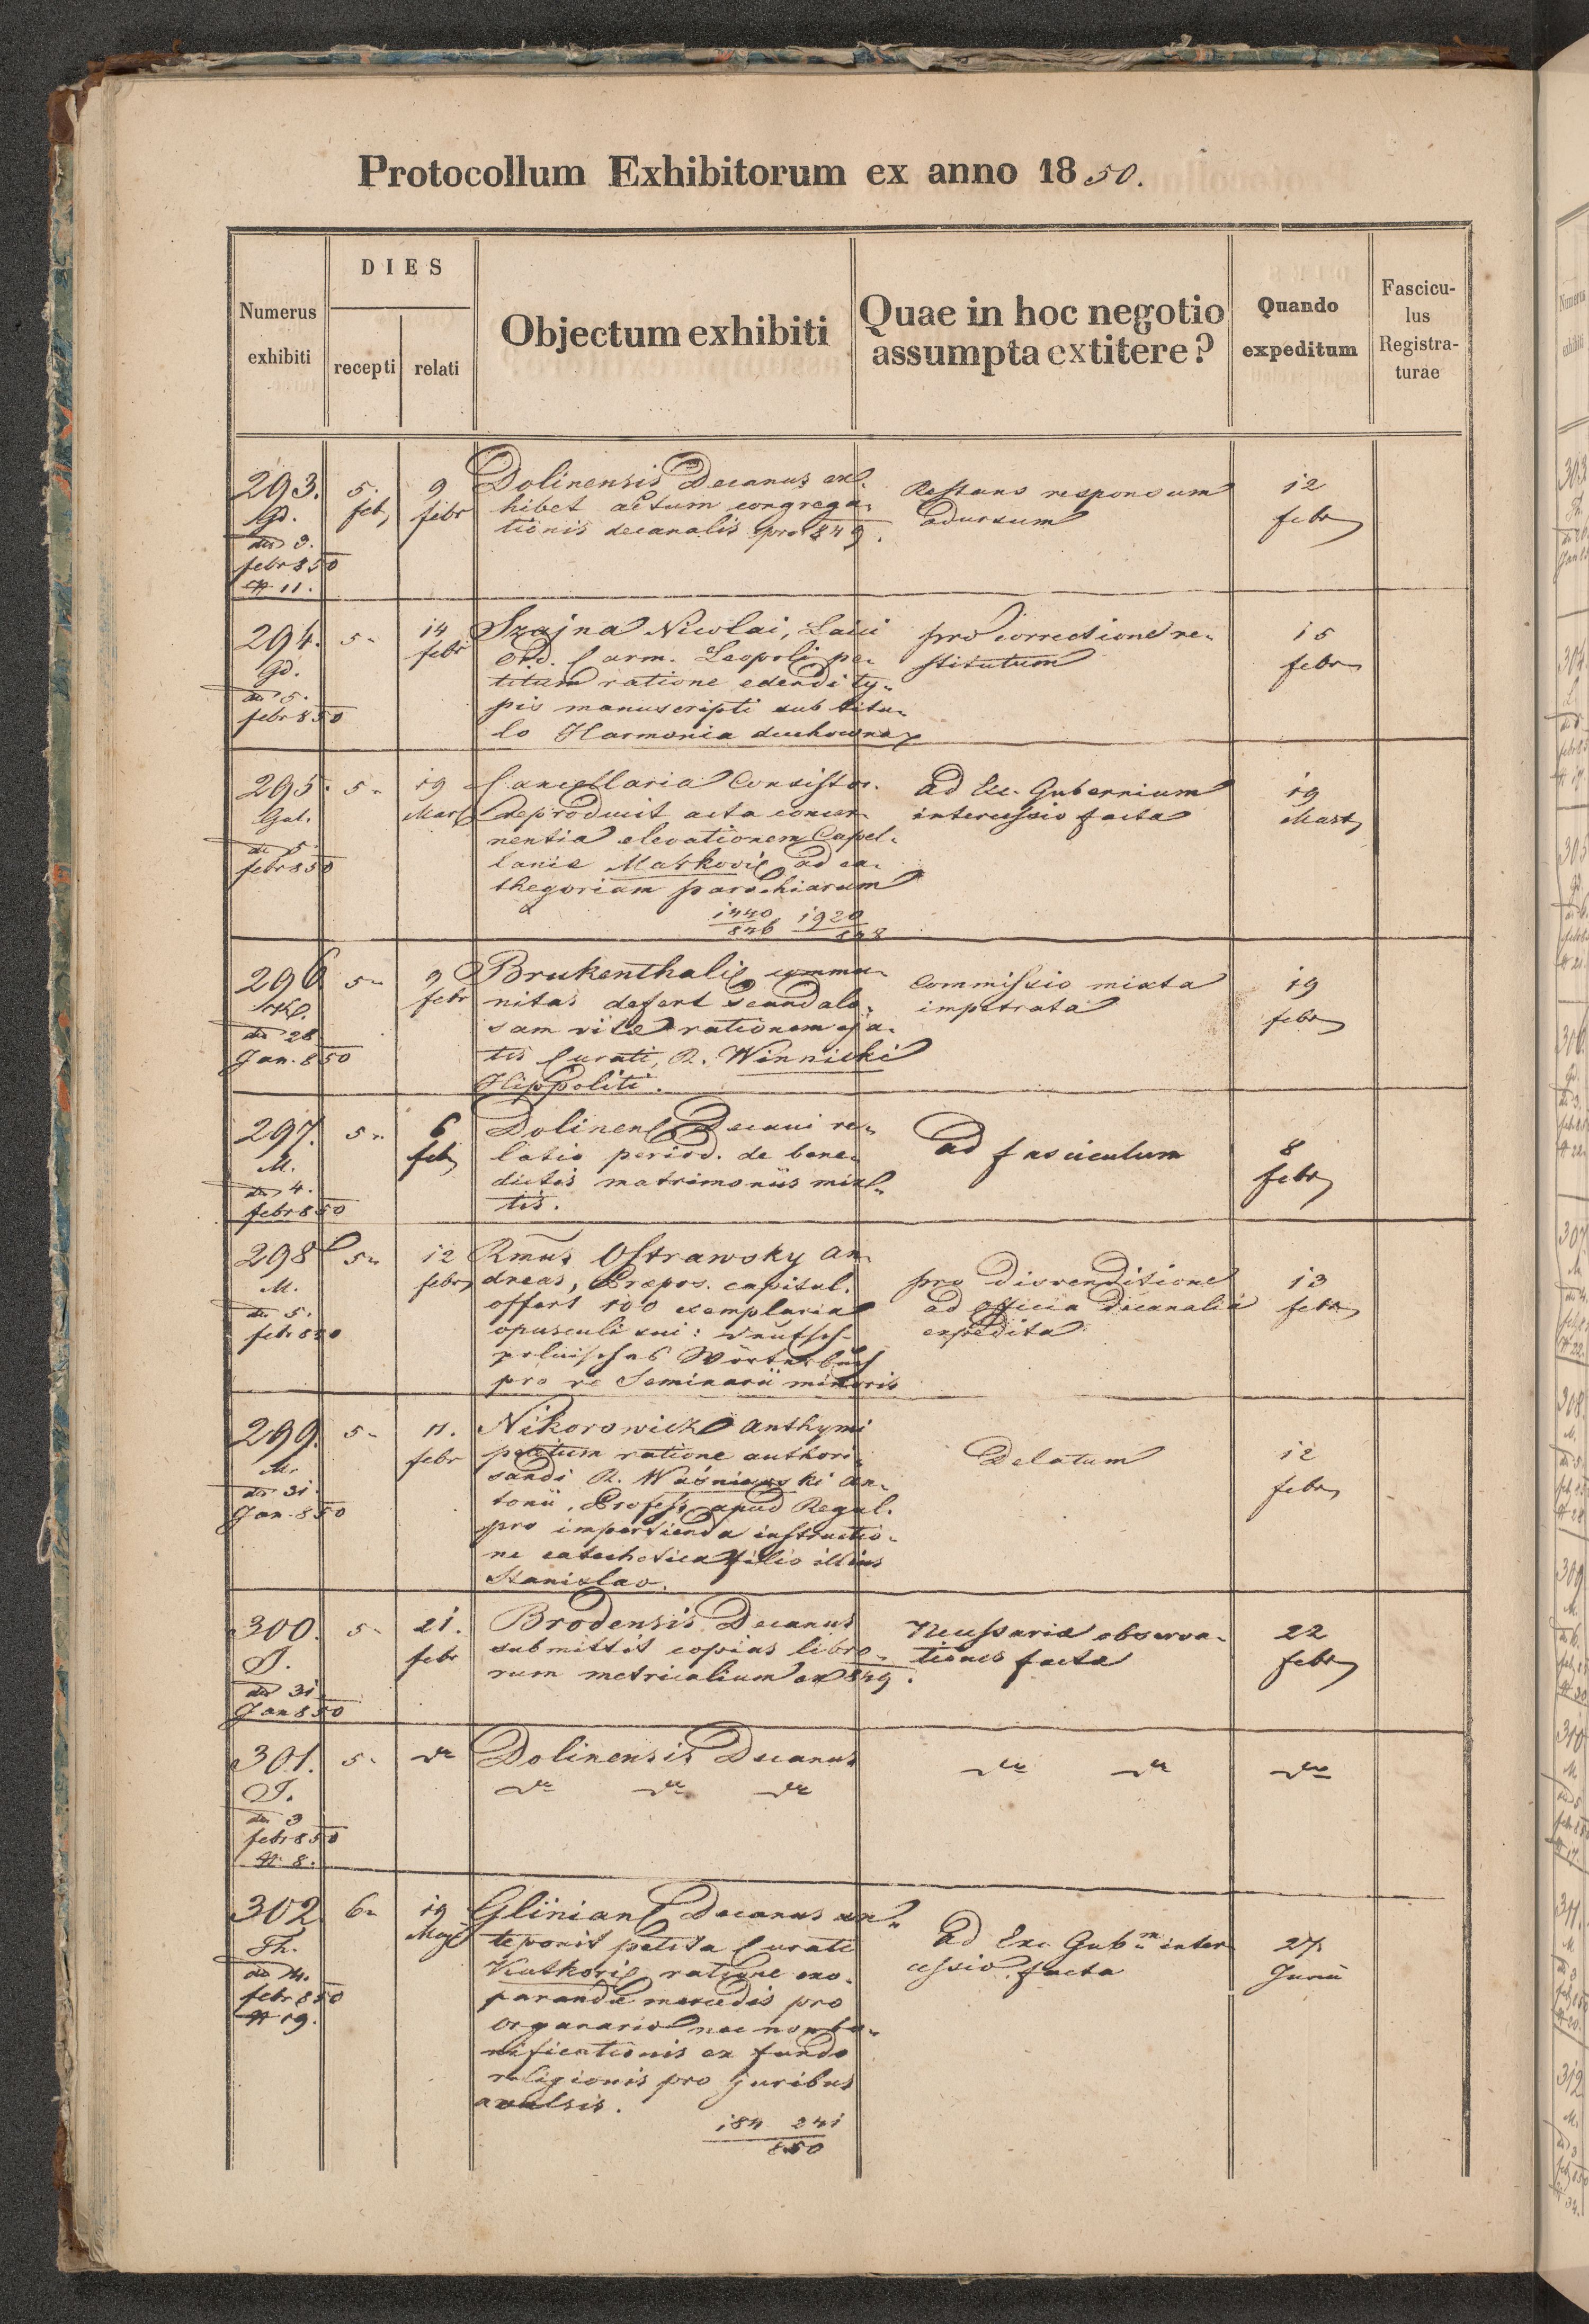 Protocollum Exhibitorum ex anno 1850.
Numerus exhibiti
DIES
recepti
relati
Objectum exhibiti
Quae in hoc negotio
assumpta extitere?
Quando
expeditum
Fascicu-
lus
Registra-
turae
293.
Gd.
dd 3.
febr 850
N 11.
5.
feb
9
febr
Dolinensis Decanus ex
hibet actum congrega-
tionis decanalis pro 849.
Restans responsum
adversum
12
febr
294.
Gd.
dd 5.
febr 850
5.
14
febr
Szajna Nicolai, Laici
Ord. Carm. Leopoli pe-
titum ratione edendi ty-
pis manuscripti sub titu-
lo Harmonia duchowna
pro correctione re-
stitutum
15
febr
295.
Gal.
dd 5
febr 850
5.
19
Mart
Cancellaria Consistor.
reproducit acta concer-
nentia elevationem Capel-
laniae ad ca-
thegoriam parochiarum
1440 1920
846 848
ad Ex. Gubernium
intercessio facta
19
Mart
296
dd 28
Jan. 850
5.
9
febr
Brukenthal commu-
nitas defert scandalo-
sam vitae rationem eja-
tis Curati, R. Winnicki
Hippoliti.
Commissio mixta
impetrata
19
febr
297.
M.
dd 4.
febr 850
5.
6
feb
Dolinen Decani re-
latio period. de bene-
dictis matrimoniis mix-
tis.
ad fasciculum
8
febr
298
M.
dd 5.
febr 850
5.
12
febr
Rmus Ostrawsky An-
dreas, Praepos. capitul.
offert 100 exemplaria
opusculi sui: deutsch-
polnisches Wörterbuch
pro re Seminarii minoris
pro divenditione
ad officia decanalia
expedita
13
febr
299.
M.
dd 31
Jan. 850
5.
11.
febr
Nikorowicz Anthymi
petitum ratione authori-
sandi R. Waśniewski An-
tonii, Profess. apud Regul.
pro impertienda instructio-
ne catechetica filio illius
Stanislao.
Delatum
12
febr
300.
T.
dd 31
Jan 850
5.
21.
febr
Brodensis Decanus
submittit copias libro-
rum metricalium ex 849.
Necessariae observa-
tiones factae
22
febr
301.
T.
dd 3
febr 850
N 8.
5.
do
Dolinensis Decanus
do do do
do do
do
302
Th.
dd 14.
febr 850
N 19.
6.
19
Maji
Glinian Decanus an-
teponit petita Curati
ratione exo-
parandae mercedis pro
organario nec non bo-
nificationis ex fundo
religionis pro juribus
avulsis.
184 241
850
ad Exc. Gubm inter
cessio facta
27.
Junii